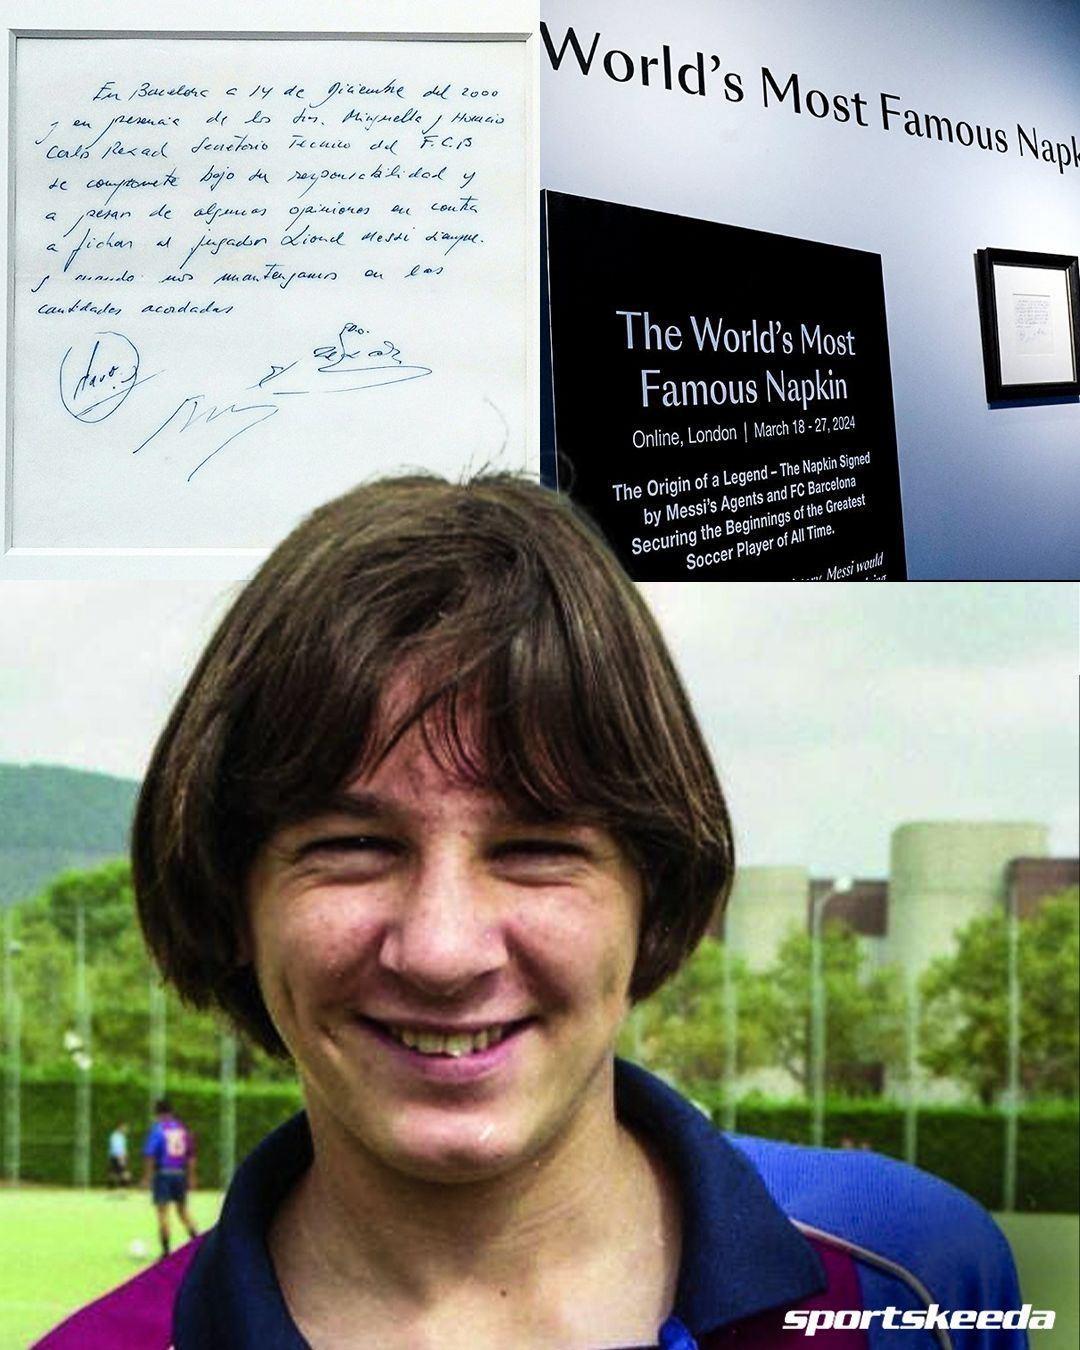 En Barcelona a 14 de Diciembre del 2000
y en presencia de los Srs. Minguella y Horacio
Carlos Rexach Secretario Técnico del F.C.B
se compromete bajo su responsabilidad y
a pesar de algunas opiniones en contra
a fichar al jugador Lionel Messi siempre
y cuando nos mantengamos en las
cantidades acordadas
World's Most Famous Napk
The World's Most
Famous Napkin
Online, London | March 18 - 27, 2024
The Origin of a Legend – The Napkin Signed
by Messi's Agents and FC Barcelona
Securing the Beginnings of the Greatest
Soccer Player of All Time.
Messi would
sportskeeda